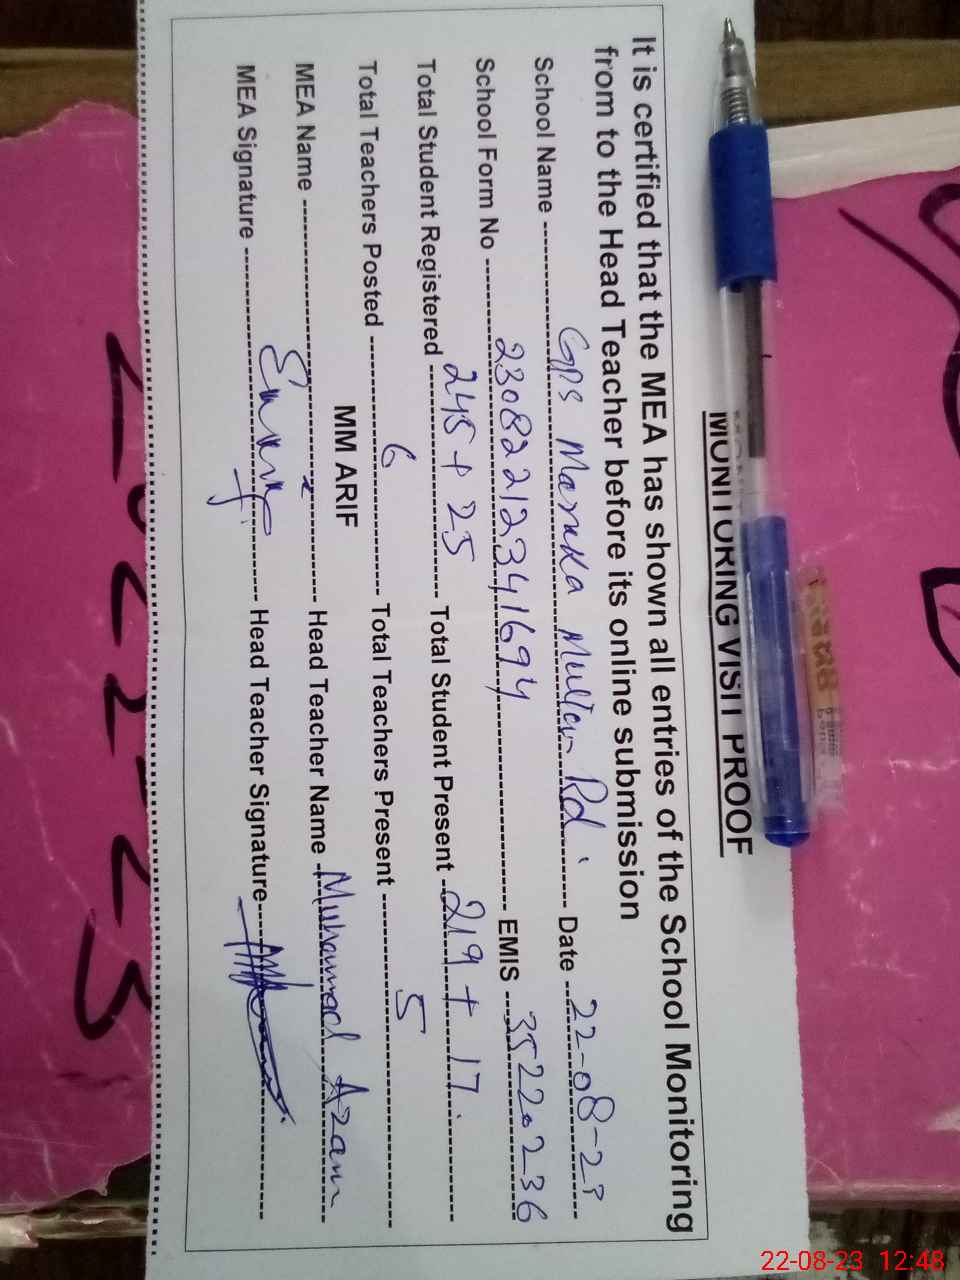 MONITORING VISIT PROOF
It is certified that the MEA has shown all entries of the School Monitoring
from to the Head Teacher before its online submission
School Name GPS Maraka Multan Rd. Date 22-08-23
School Form No 23082212341694 EMIS 35220236
Total Student Registered 245 + 25 Total Student Present 219 + 17.
Total Teachers Posted 6 Total Teachers Present 5
MM ARIF
MEA Name Head Teacher Name Muhammad Azam
MEA Signature Head Teacher Signature
22-08-23 12:48